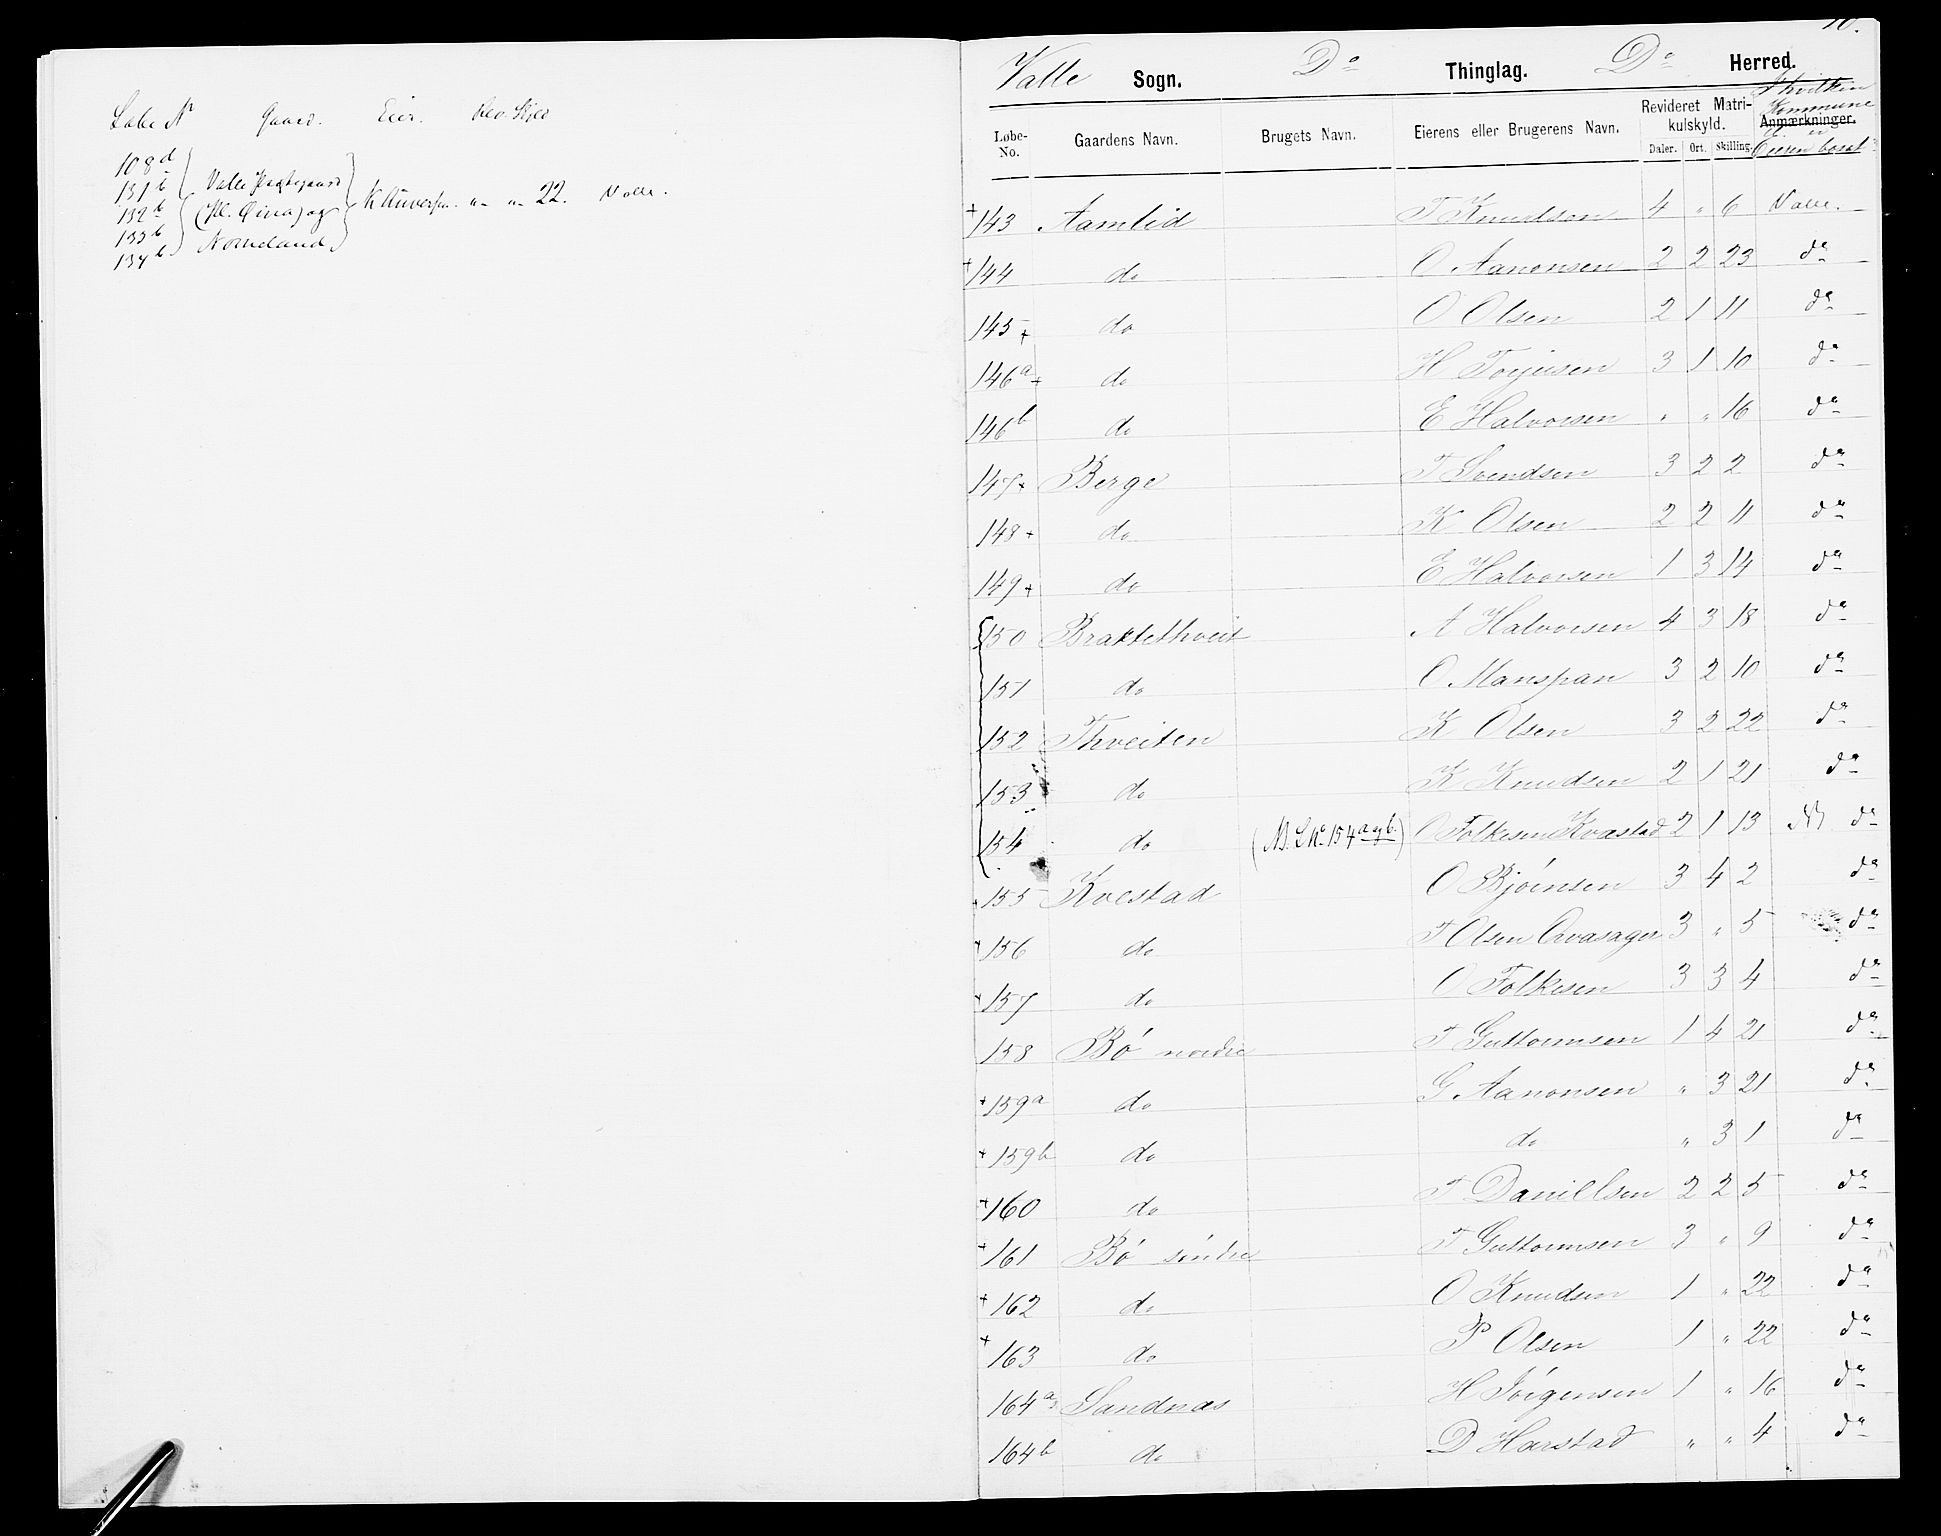 Løbe N Gaard. Eier. Rev. Skjld
108d
131b Valle Præstegaard
132b (Kl. Øina) og K Annersen. „ „ 22. Valle.
133b Nomeland
134b
10.
Valle Sogn. Do Thinglag. Do Herred.
I hvilken Kommune er Eieren bosat
Løbe-No. Gaardens Navn. Brugets Navn. Eierens eller Brugerens Navn. Revideret Matrikulskyld. Anmærkninger.
Daler. Ort. Skilling.
+143 Aamlid T Knudsen 4 „ 6 Valle.
+144 do O Aanonsen 2 2 23 do
145+ do O Olsen 2 1 11 do
146a+ do H Torjusen 3 1 10 do
146b do E Halvorsen „ „ 16 do
147+ Berge T Svendsen 3 2 2 do
148+ do K Olsen 2 2 11 do
149+ do E Halvorsen 1 3 14 do
150 Brattethveit A Halvorsen 4 3 18 do
151 do O Manspan 3 2 10 do
152 Thveiten K Olsen 3 2 22 do
153 do K Knudsen 2 1 21 do
154 do (NB. L No 154 a og b.) O Folkesen Kvastad 2 1 13 do
155 Kvestad O Bjørnsen 3 4 2 do
156 do T Olsen Qvasager 3 „ 5 do
157 do O Folkesen 3 3 4 do
158 Bø nordre T Guttormsen 1 4 21 do
+159a do G Aanonsen „ 3 21 do
+159b do do „ 3 1 do
+160 do T Daniellsen 2 2 5 do
+161 Bø søndre T Guttormsen 3 „ 9 do
+162 do O Knudsen 1 „ 22 do
+163 do P Olsen 1 „ 22 do
164a Sandnæs H Jørgensen 1 „ 16 do
164b do D Harstad „ „ 4 do